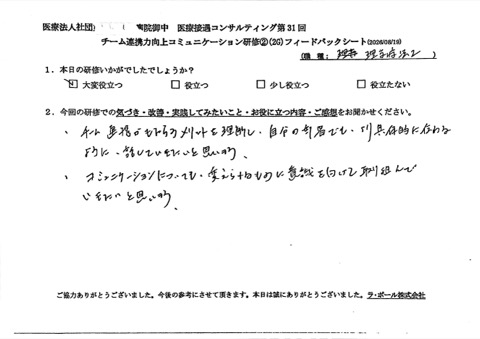 医療法人社団 院御中 医療接遇コンサルティング第31回
チーム連携力向上コミュニケーション研修②(2G)フィードバックシート(2026/08/19)
(職種: 理学療法士)
1．本日の研修いかがでしたでしょうか？
☑ 大変役立つ □ 役立つ □ 少し役立つ □ 役立たない
2．今回の研修での気づき・改善・実践してみたいこと・お役に立つ内容・ご感想をお聞かせください。
・チーム連携がもたらすメリットを理解し、自分の部署でも、より具体的に伝わる
ように、話していきたいと思います。
・コミュニケーションについても、変えられるものに意識を向けて取り組んで
いきたいと思います。
ご協力ありがとうございました。今後の参考にさせて頂きます。本日は誠にありがとうございました。ラ・ポール株式会社